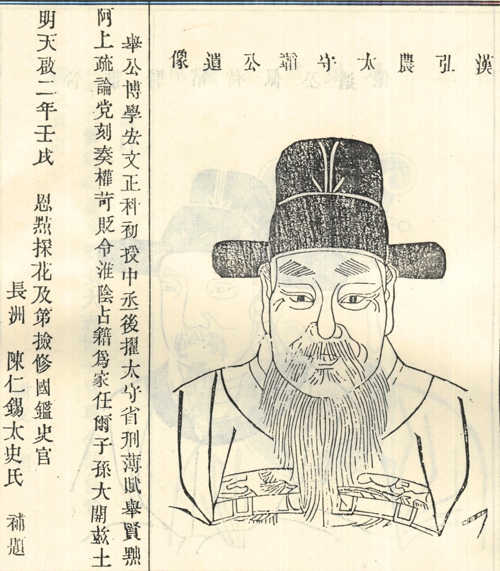 漢弘農太守公遺像
舉公博學宏文正科初授中丞後擢太守省刑薄賦舉賢黜
阿上疏論党刻奏權苛貶令淮陰占籍爲家任爾子孫大開茲土
明天啟二年壬戌 恩點探花及第撿修國鑑史官
長洲 陳仁錫太史氏 補題